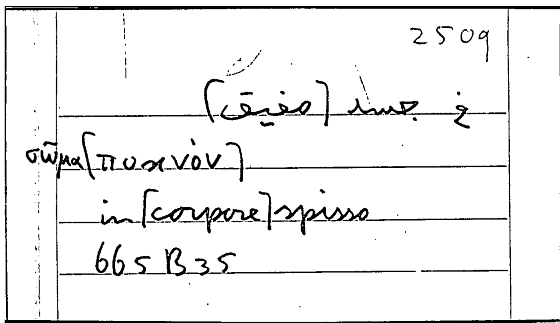 2509
في جسد [صفيق]
σῶμα [πυκνόν]
in [corpore] spisso
665 B 35